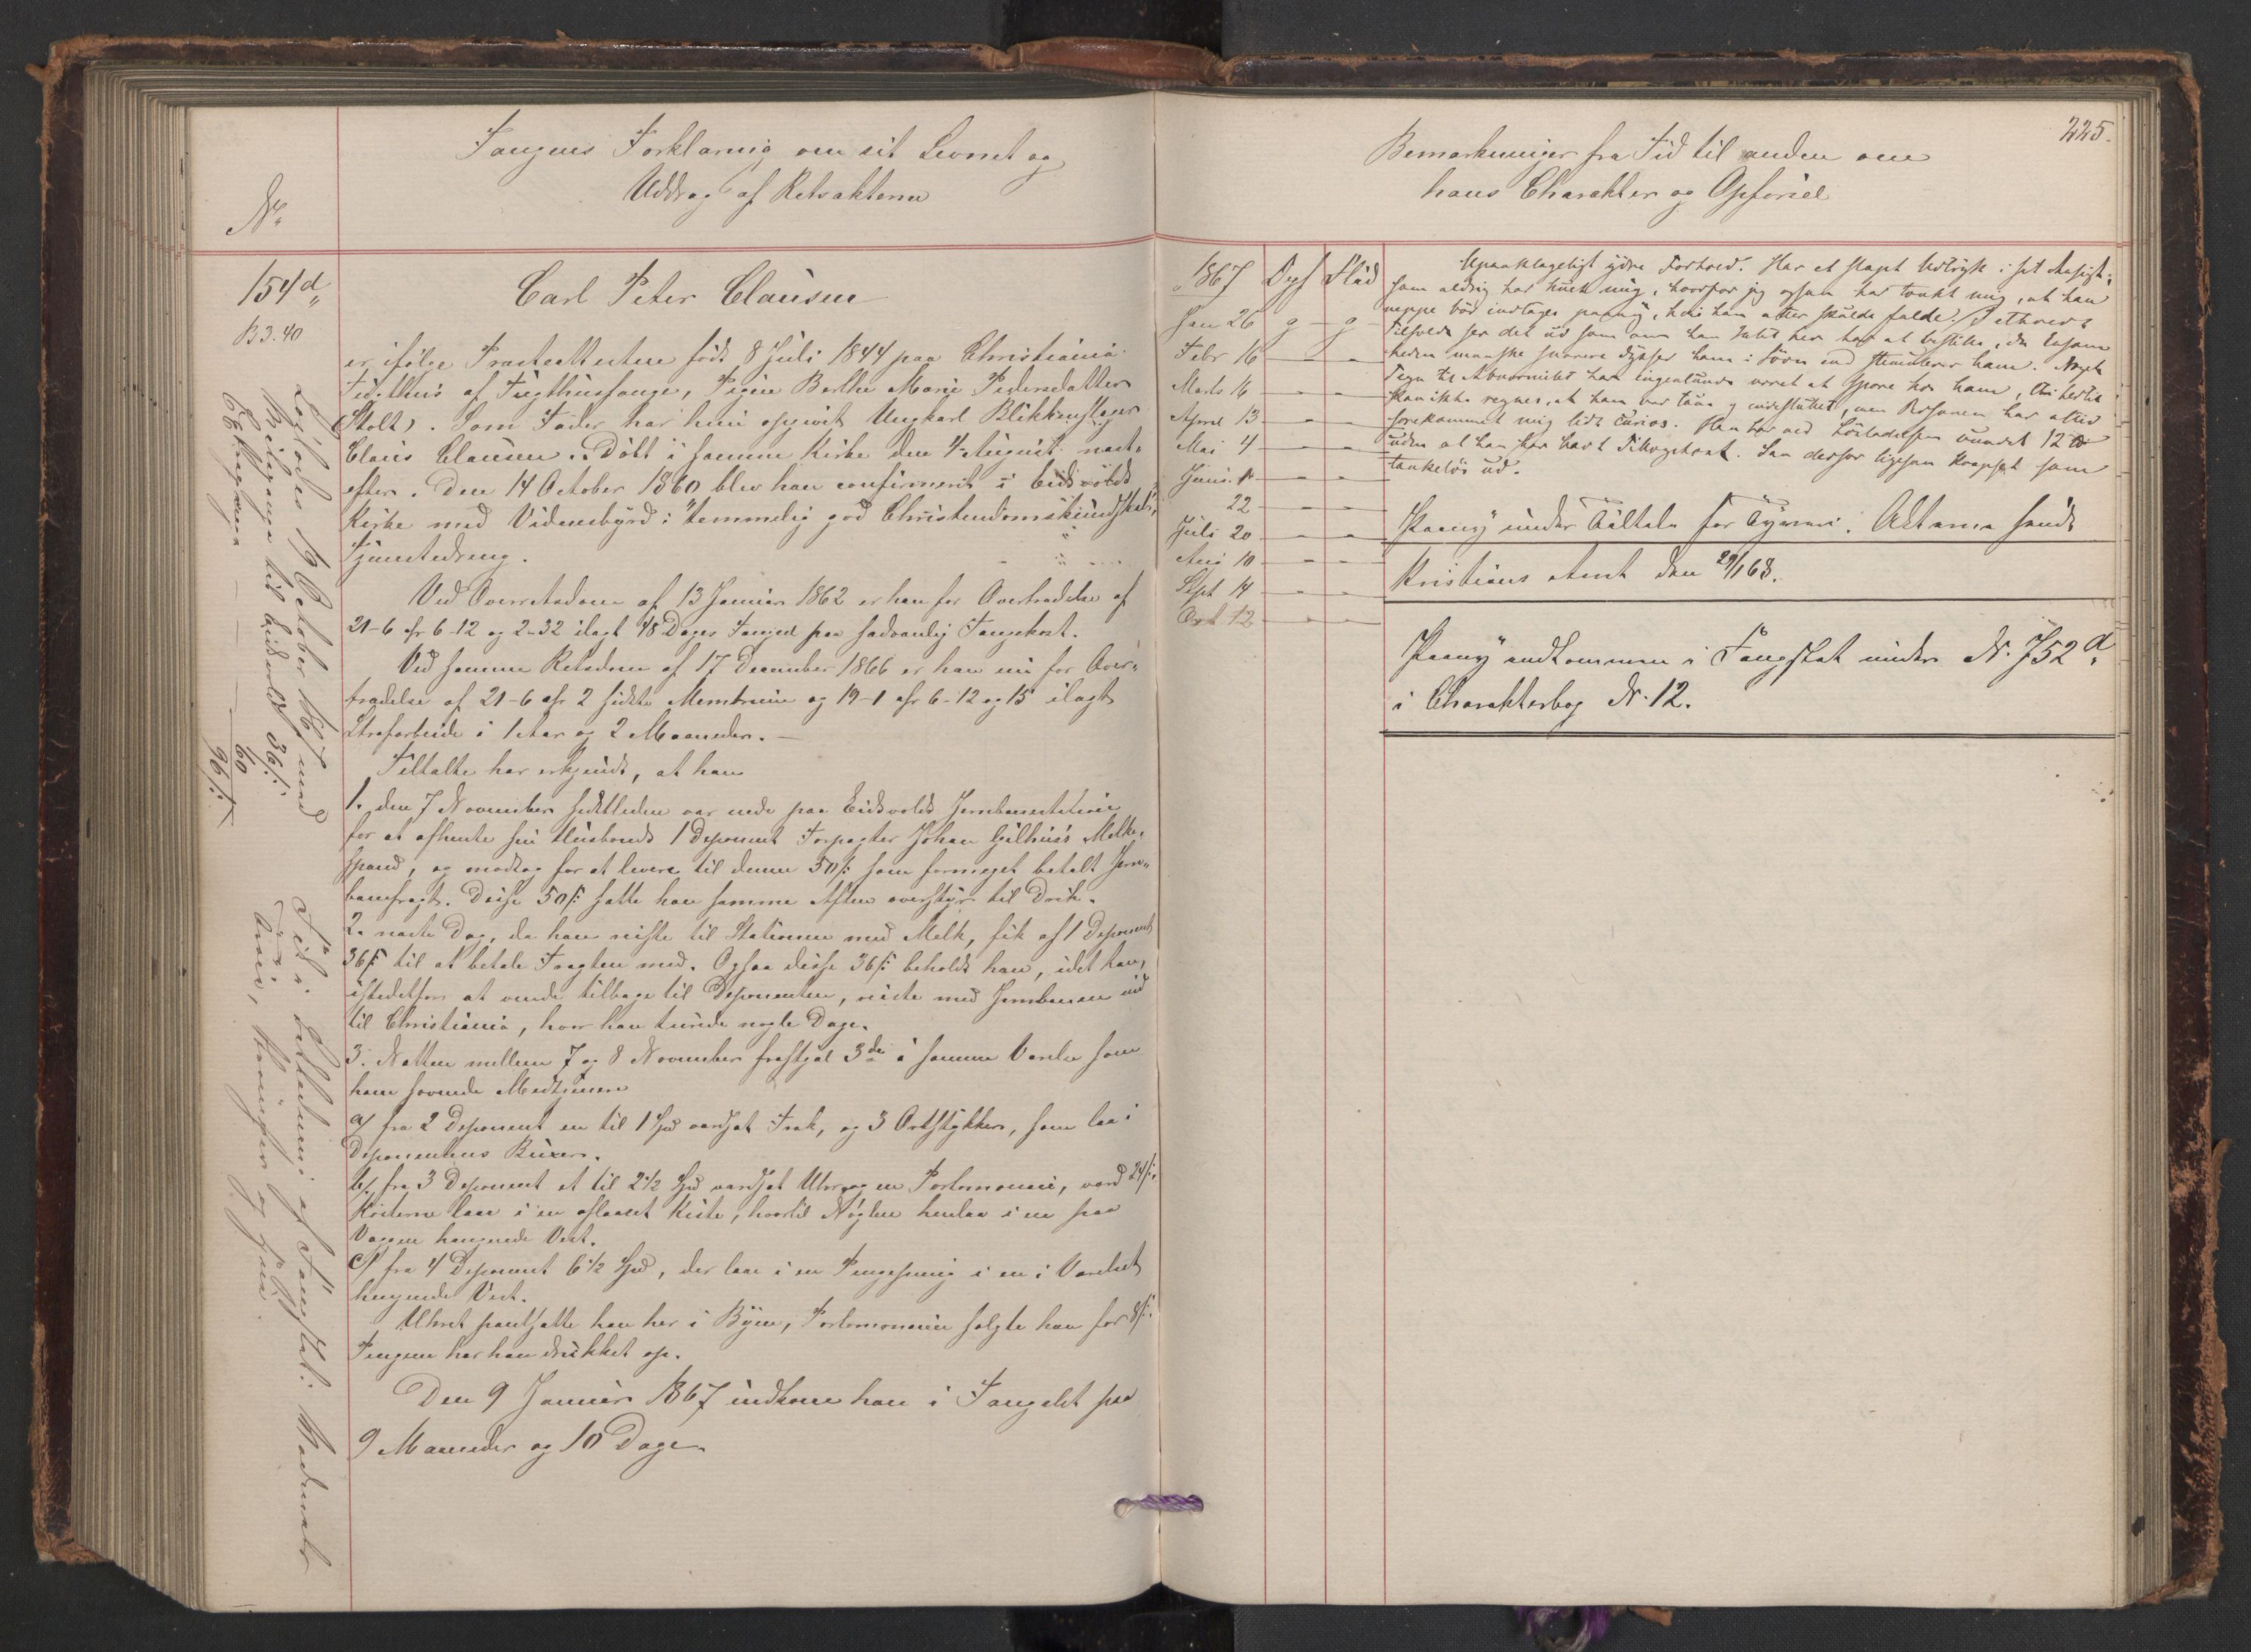 Fangens Forklaring om sit Levnet og
Uddrag af Retsakterne
No
154d
B 3. 40
Carl Peter Clausen
er ifølge Præsteattesten født 8 Juli 1844 paa Christiania
Tugthus af Tugthusfange, Pigen Berthe Marie Pedersdatter
(Stolt). Som Fader har hun opgivet Ungkarl Blikkenslager
Claus Clausen. Døbt i samme Kirke den 4 August næst-
efter. Den 14 October 1860 blev han confirmeret i Eidsvolds
Kirke med Vidnesbyrd: "temmelig god Christendomskundskab",
Tjenestedreng.
Ved Overretsdom af 13 Januar 1862 er han for Overtrædelse af
21-6 cfr 6-12 og 2-32 ilagt 48 Dages Fængsel paa sædvanlig Fangekost.
Ved samme Retsdom af 17 December 1866 er han nu for Over-
trædelse af 21-6 cfr 2 sidste Membrum og 19-1 cfr 6-12 og 15 ilagt
Strafarbeide i 1 Aar og 2 Maaneder.
Tiltalte har erkjendt, at han
1. den 7 November sidstleden var nede paa Eidsvolds Jernbanestation
for at afhente sin Husbonds 1 Deponent Forpagter Johan Gilhuus's Melke-
spand, og modtog for at levere til denne 50 s. som formeget betalt Jern-
banefragt. Disse 50 s. satte han samme Aften overstyr til Drik.
2. næste Dag, da han reiste til Stationen med Melk, fik af 1 Deponent
36 s. til at betale Fragten med. Ogsaa disse 36 s. beholdt han, idet han,
istedetfor at vende tilbage til Deponenten, reiste med Jernbanen ind
til Christiania, hvor han turede nogle Dage.
3. Natten mellem 7 og 8 November frastjal 3de i samme Værelse som
ham sovende Medtjenere
a) fra 2 Deponent en til 1 Spd værdsat Frak, og 3 Ortstykker, som laa i
Deponentens Buxer.
b) fra 3 Deponent et til 2 1/2 Spd værdsat Uhr og en Portemonnaie, værd 24 s.
Kosterne laae i en aflaaset Kiste, hvortil Nøglen henlaa i en paa
Væggen hængende Vest.
c) fra 4 Deponent 6 1/2 Spd, der laae i en Pengepung i en i Værelset
hængende Vest.
Uhret pantsatte han her i Byen, Portemonnaien solgte han for 8 s.
Pengene har han drukket op.
Den 9 Januar 1867 indkom han i Fængslet paa
9 Maaneder og 10 Dage.
Løslodes 19 October 1867 med
Reisepenge til Eidsvold 36 s.
60
96 s.
Tid i Anledning af Fængslet: Moderat
225.
Bemærkninger fra Tid til anden om
hans Charakter og Opførsel
1867 Opf Flid
Jan 26 g g
Febr 16 - -
Marts 16 - -
April 13 - -
Mai 4 - -
Juni 1 - -
22 - -
Juli 20 - -
Aug 10 - -
Sept 14 - -
Oct 12 - -
Upaaklageligt ydre Forhold. Har et slapt Udtryk i sit Ansigt,
som aldrig har huet mig, hvorfor jeg ogsaa har tænkt mig, at han
neppe bør indtages paany, hvis han atter skulde falde. I ethvert
Tilfælde ser det ud som om han Intet her har at bestille, da Ensom-
heden maaske snarere dysser ham i Søvn end stimulerer ham. Noget
Tegn til Abnormitet har ingenlunde været at spore hos ham, thi hertil
kan ikke regnes, at han var taus og indesluttet, men Personen har altid
forekommet mig lidt curios. Han har ved Løsladelsen vundet 12 ℔
uden at han har havt Tillægskost. Saa derfor ligesom kropset som
tankeløs ud.
Paany under Tiltale for Tyveri. Akterne sendt
Kristians Amt den 29/1 68.
Paany indkommen i Fangstat under No. 752 d.
i Charakterbog No. 12.